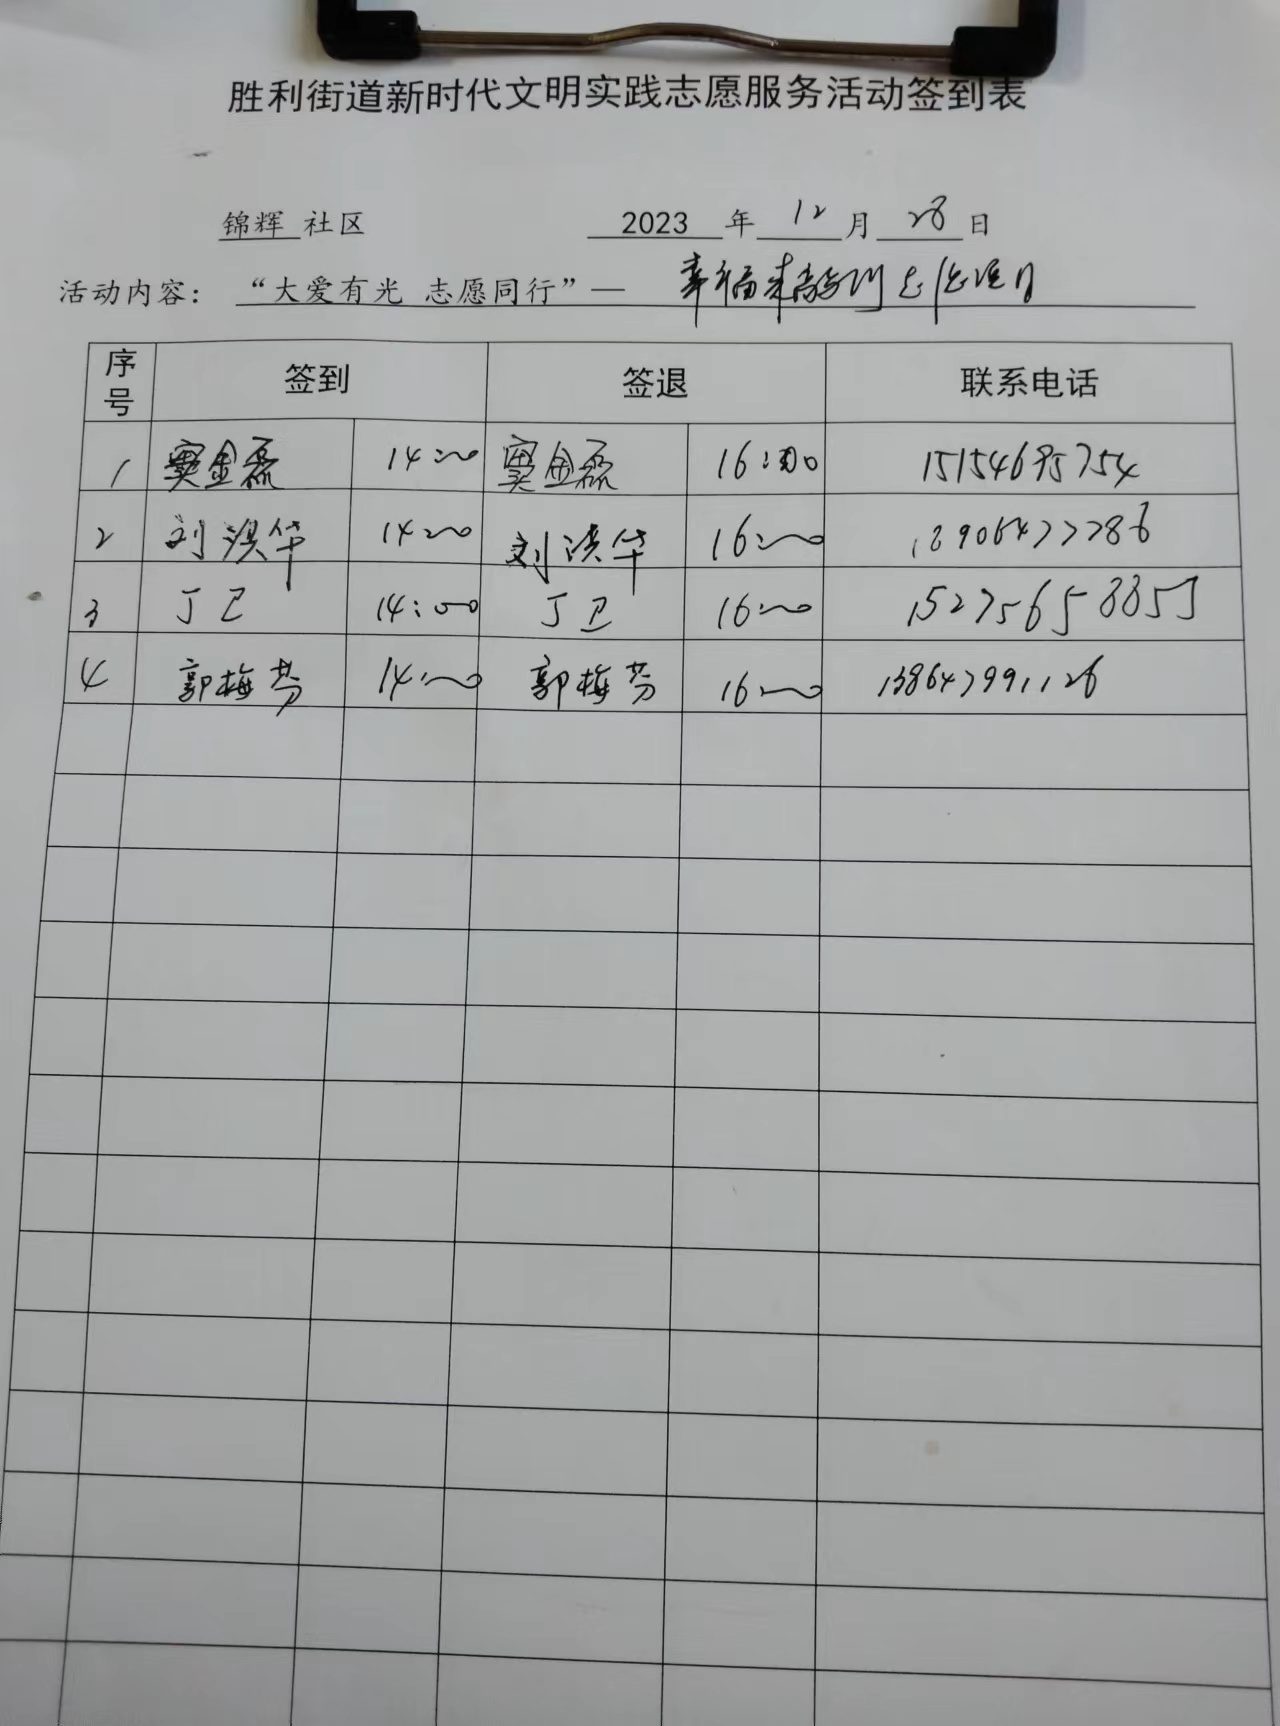 胜利街道新时代文明实践志愿服务活动签到表
锦辉 社区 2023 年 12 月 28 日
活动内容： “大爱有光 志愿同行”— 幸福来敲门
序号 签到 签退 联系电话
1 窦金磊 14:00 窦金磊 16:00 15154695754
2 刘洪华 14:00 刘洪华 16:00 13906477786
3 丁卫 14:00 丁卫 16:00 15275658855
4 郭梅芬 14:00 郭梅芬 16:00 13864799126